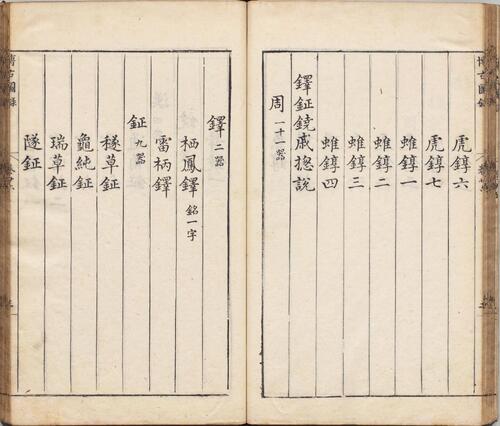 虎錞六
虎錞七
蜼錞一
蜼錞二
蜼錞三
蜼錞四
鐸鉦鐃戚總說
周 一十一器
鐸 二器
栖鳳鐸 銘一字
雷柄鐸
鉦 九器
穟草鉦
龜純鉦
瑞草鉦
隧鉦
博古圖錄
博古圖錄